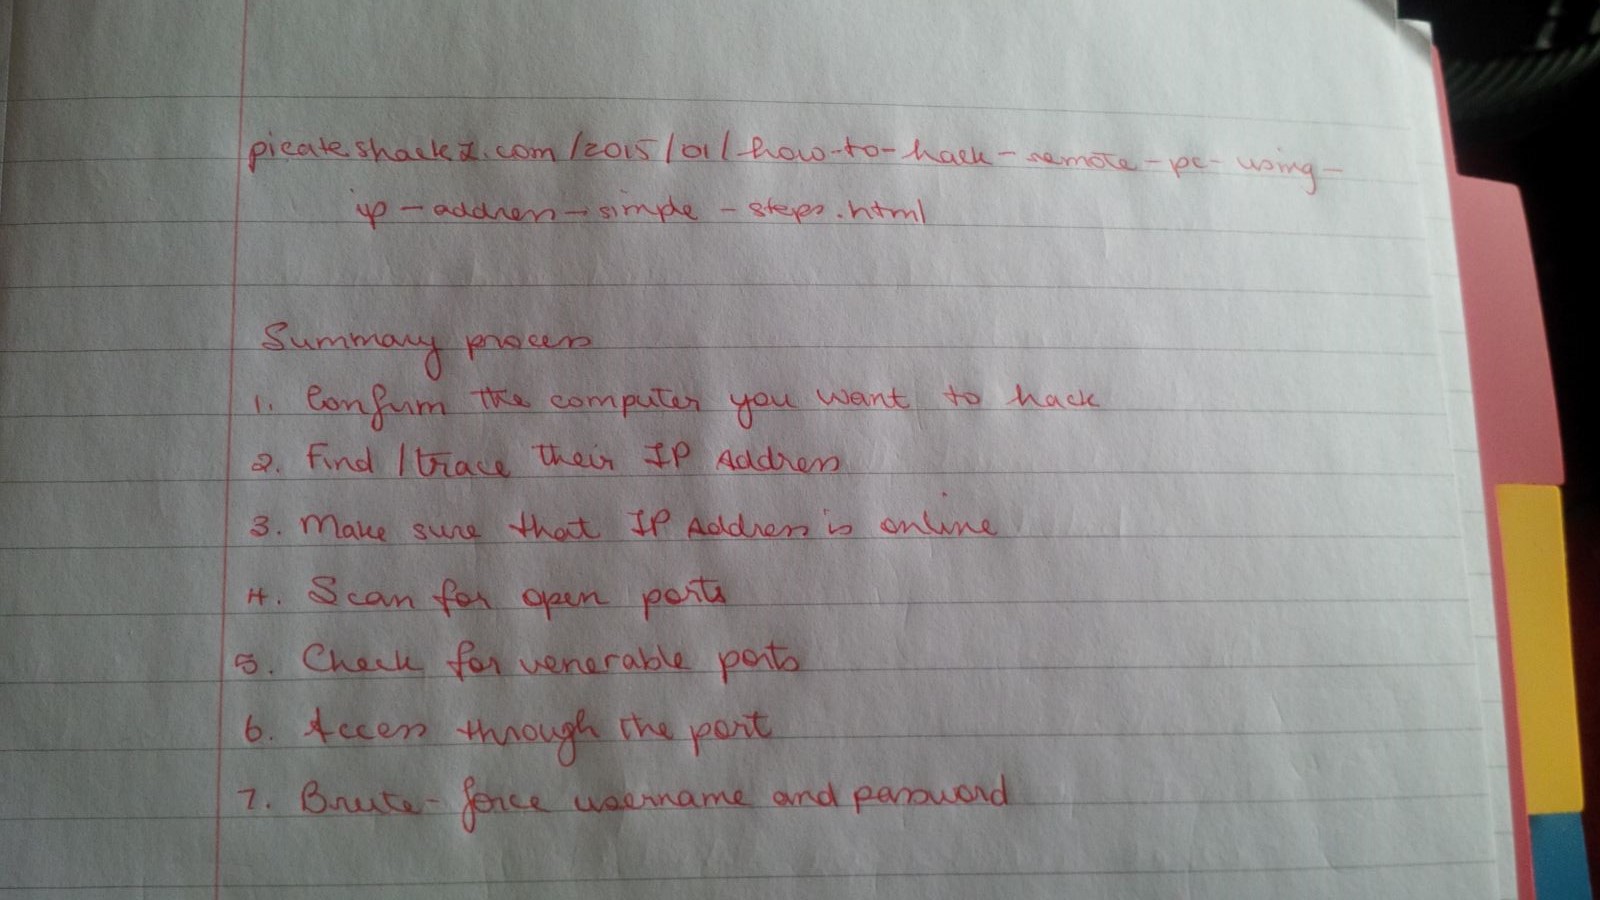 picateshackz.com/2015/01/how-to-hack-remote-pc-using-
ip-address-simple-steps.html
Summary process
1. Confirm the computer you want to hack
2. Find/trace their IP Address
3. Make sure that IP Address is online
4. Scan for open ports
5. Check for venerable ports
6. Access through the port
7. Brute-force username and password